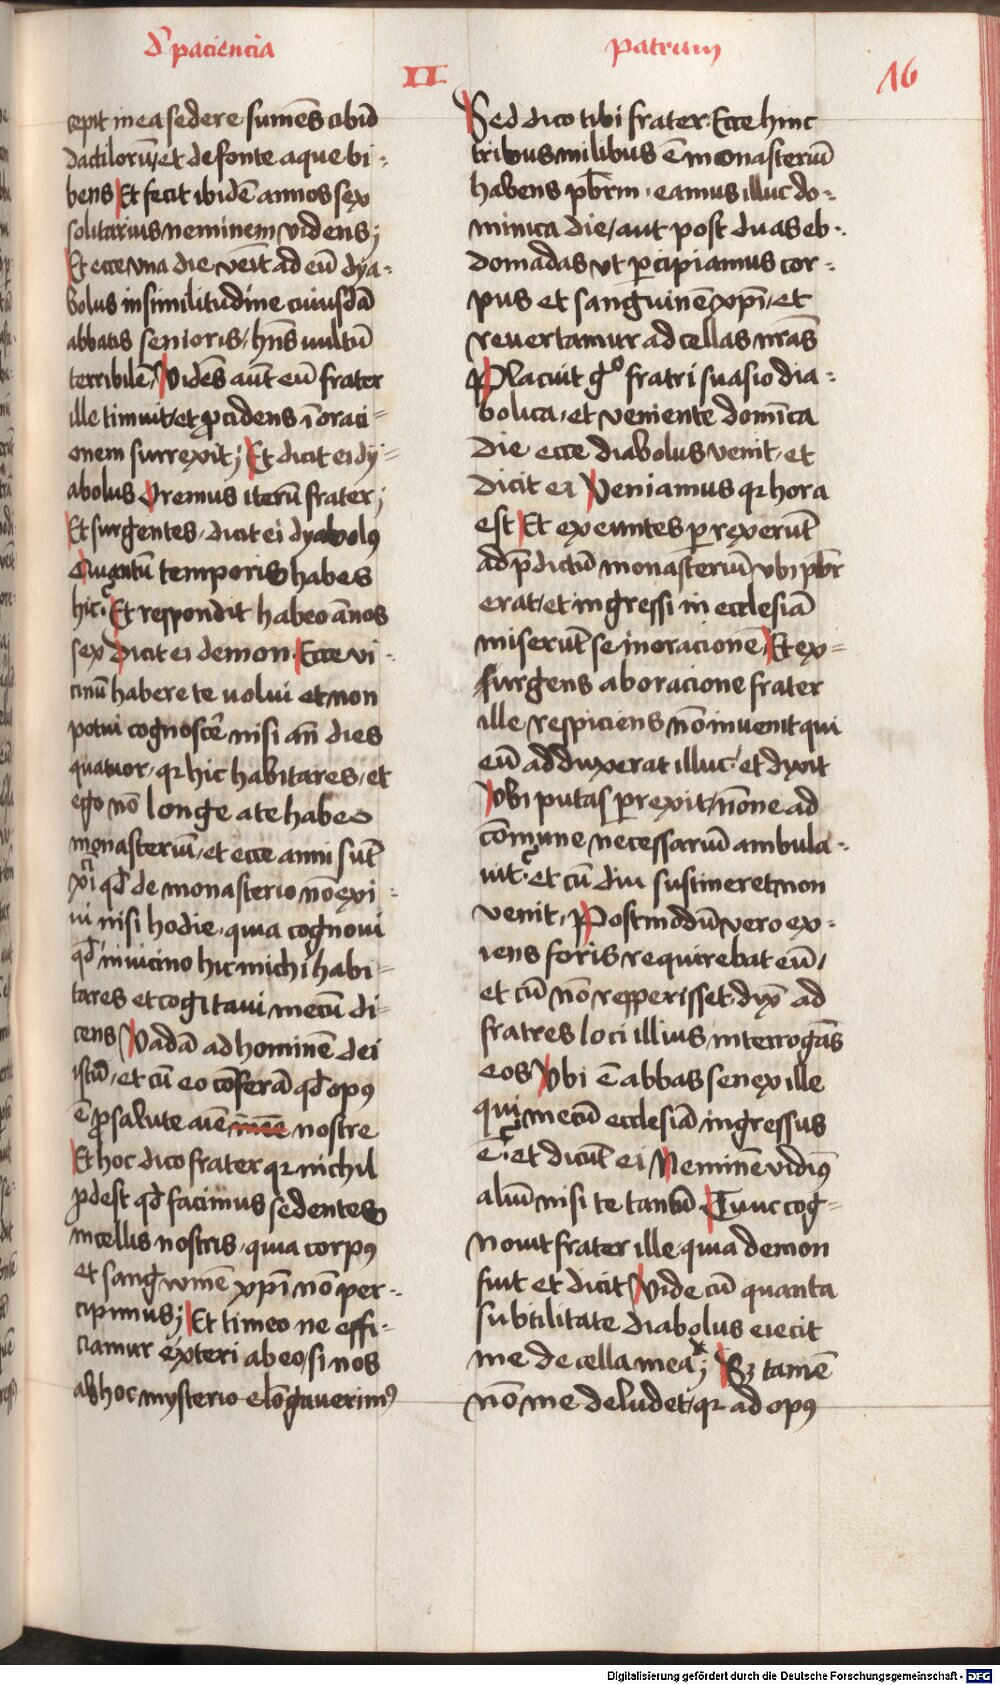 d̾ paciencia
II
patrum
16
cepit in ea sedere sumēs cibū
dactiloru᷒, et de fonte aque bi-
bens Et fecit ibidē annos sex
solitarius neminem videns;
Et ecce vna die veit ad eū dya-
bolus in similitudine cuiusdā
abbatis senioris, hn̄s vultū
terribilē, Vidēs aut̄ eū frater
ille timuit, et ꝓcidens ī oraci-
onem surrexit; Et dicit ei dy-
abolus Oremus iterū frater;
Et surgentes, dicit ei dyabolꝰ
Quantū temporis habes
hic? Et respondit habeo ānos
sex Dicit ei demon Ecce vi-
cinū habere te volui et non
potui cognoscē nisi an̄ dies
quatuor, qr hic habitares, et
ego nō longe a te habeo
monasteriū, et ecce anni sūt
xi qd̄ de monasterio nō exi-
ui nisi hodie, quia cognoui
qd̄ in vicino hic michi habi-
tares et cogitaui mecū di-
cens Vadā ad hominē dei
istū, et cū eo cōferā qd̄ opꝰ
ē ꝓ salute aīe nostre
Et hoc dico frater qr nichil
ꝓdest qd̄ facimus sedentes
in cellis nostris, quia corpꝰ
et sangwinē xp̄i nō per-
cipimus; Et timeo ne effi-
ciamur exteri ab eo, si nos
ab hoc mysterio elōgauerimꝰ
Sed dico tibi frater Ecce hinc
tribus milibus ē monasteriū
habens pb̄rm, eamus illuc do-
minica die, aut post duas eb-
domadas vt ꝑcipiamus cor-
pus et sanguinē xp̄i, et
reuertamur ad cellas nr̄as
Placuit gͦ fratri suasio dia-
bolica, et veniente domīca
die ecce diabolus venit, et
dicit ei Veniamus qr hora
est Et exeuntes ꝑrexerūt
ad p̄dictū monasteriū vbi pb̄r
erat, et ingressi in ecclesiā
miserūt se in oracionē, Et ex-
surgens ab oracione frater
ille respiciens nō inuenit qui
eū adduxerat illuc, et dixit
Vbi putas ꝑrexit, nōne ad
cōmune necessariū ambula-
uit? et cū diu sustineret, non
venit, Postmodū vero ex-
iens foris requirebat eū,
et cū nō repperisset, dix̄ ad
fratres loci illius interrogās
eos Vbi ē abbas senex ille
qui mecū ecclesiā ingressus
ē? et dicūt ei Neminē vidimꝰ
aliū nisi te tantū Tunc cog-
nouit frater ille quia demon
fuit et dicit Vide cū quanta
subtilitate diabolus eiecit
me de cella mea; Sꝫ tamē
nō me deludet, qr ad opꝰ
Digitalisierung gefördert durch die Deutsche Forschungsgemeinschaft - DFG